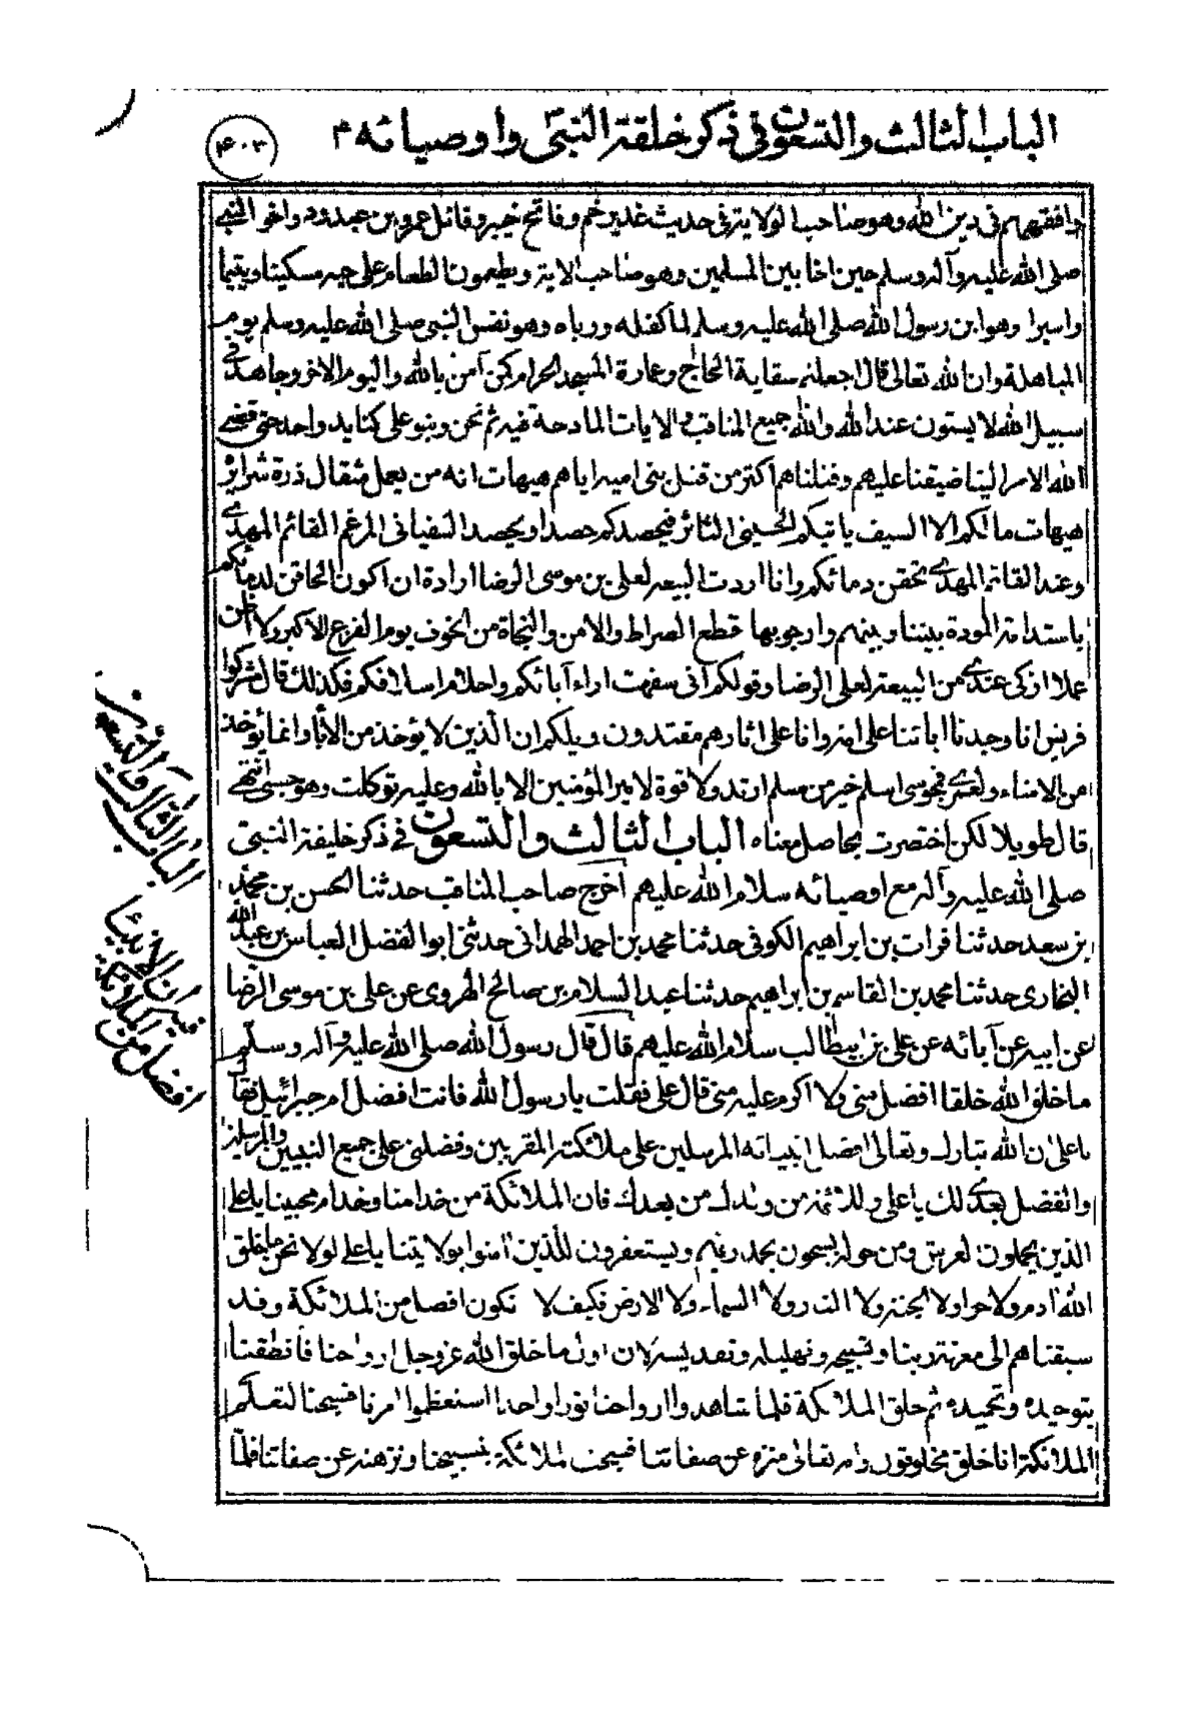 الباب الثالث والتسعون في ذكر خلقة النبي واوصيائه ٤
٤٠٣
وافقههم في دين الله وهو صاحب الولاية في حديث غدير خم وفاتح خيبر وقاتل عمرو بن عبدود واخو النبي
صلى الله عليه وآله وسلم حين اخا بين المسلمين وهو صاحب الاية ويطعمون الطعام على حبه مسكينا ويتيما
واسيرا وهو ابن رسول الله صلى الله عليه وسلم لما كفله ورباه وهو نفس النبي صلى الله عليه وسلم يوم
المباهلة وان الله تعالى قال اجعلتم سقاية الحاج وعمارة المسجد الحرام كمن آمن بالله واليوم الاخر وجاهد في
سبيل الله لا يستون عند الله والله جميع المناقب والايات المادحة فيه ثم نحن وبنو على كنا يد واحد حتى قضى
الله الامر الينا ضيقنا عليهم وقتلناهم اكثر من قتل بنى امية اياهم هيهات انه من يعمل مثقال ذرة شرا يره
هيهات مالكم الا السيف ياتيكم الحسينى الثائر فيحصدكم حصدا ويحصد السفيانى المرغم القائم المهدى
وعند القائم المهدى تحقن دمائكم وانا اردت البيعة لعلى بن موسى الرضا ارادة ان اكون الحاقن لدمائكم
باستدامة المودة بيننا وبينهم وارجو بها قطع الصراط والامن والنجاة من الخوف يوم الفزع الاكبر ولا اظن
عملا ازكى عندى من البيعة لعلى الرضا وقولكم انى سفهت اراء آبائكم واحلام اسلافكم فكذلك قال مشركوا
قريش انا وجدنا اباءنا على امة وانا على اثارهم مقتدون ويلكم ان الدين لا يؤخذ من الاباء وانما يؤخذ
من الامناء ولعمرى مجوسى اسلم خير من مسلم ارتد ولا قوة لامير المؤمنين الا بالله وعليه توكلت وهو حسبى انتهى
قال طويلا لكن اختصرت بحاصل معناه الباب الثالث والتسعون في ذكر خليفة النبي
صلى الله عليه وآله مع اوصيائه سلام الله عليهم اخرج صاحب المناقب حدثنا الحسن بن محمد
بن سعد حدثنا فرات بن ابراهيم الكوفى حدثنا محمد بن احمد الهمدانى حدثنى ابو الفضل العباس بن عبد الله
البخارى حدثنا محمد بن القاسم بن ابراهيم حدثنا عبد السلام بن صالح الهروى عن على بن موسى الرضا
عن ابيه عن آبائه عن على بن ابيطالب سلام الله عليهم قال قال رسول الله صلى الله عليه وآله وسلم
ما خلق الله خلقا افضل منى ولا اكرم عليه منى قال على فقلت يا رسول الله فانت افضل ام جبرائيل فقال
يا على ان الله تبارك وتعالى افضل انبيائه المرسلين على ملائكته المقربين وفضلنى على جميع النبيين والمرسلين
والفضل بعدى لك يا على وللائمة من ولدك من بعدك فان الملائكة من خدامنا وخدام محبينا يا على
الذين يحملون العرش ومن حوله يسبحون بحمد ربهم ويستغفرون للذين امنوا بولايتنا يا على لولا نحن ما خلق
الله آدم ولا حوا ولا الجنة ولا النار ولا السماء ولا الارض فكيف لا نكون افضل من الملائكة وقد
سبقناهم الى معرفة ربنا وتسبيحه وتهليله وتقديسه لان اول ما خلق الله عز وجل ارواحنا فانطقنا
بتوحيده وتحميده ثم خلق الملائكة فلما شاهدوا ارواحنا نورا واحدا استعظموا امرنا فسبحنا لتعلم
الملائكة انا خلق مخلوقون وانه تعالى منزه عن صفاتنا فسبحت الملائكة بتسبيحنا ونزهته عن صفاتنا فلما
الباب الثالث والتسعون
فى ان الانبياء
افضل من الملائكة